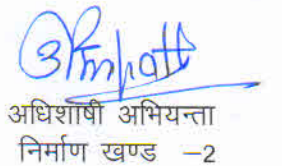 अधिशाषी अभियन्ता
निर्माण खण्ड –2